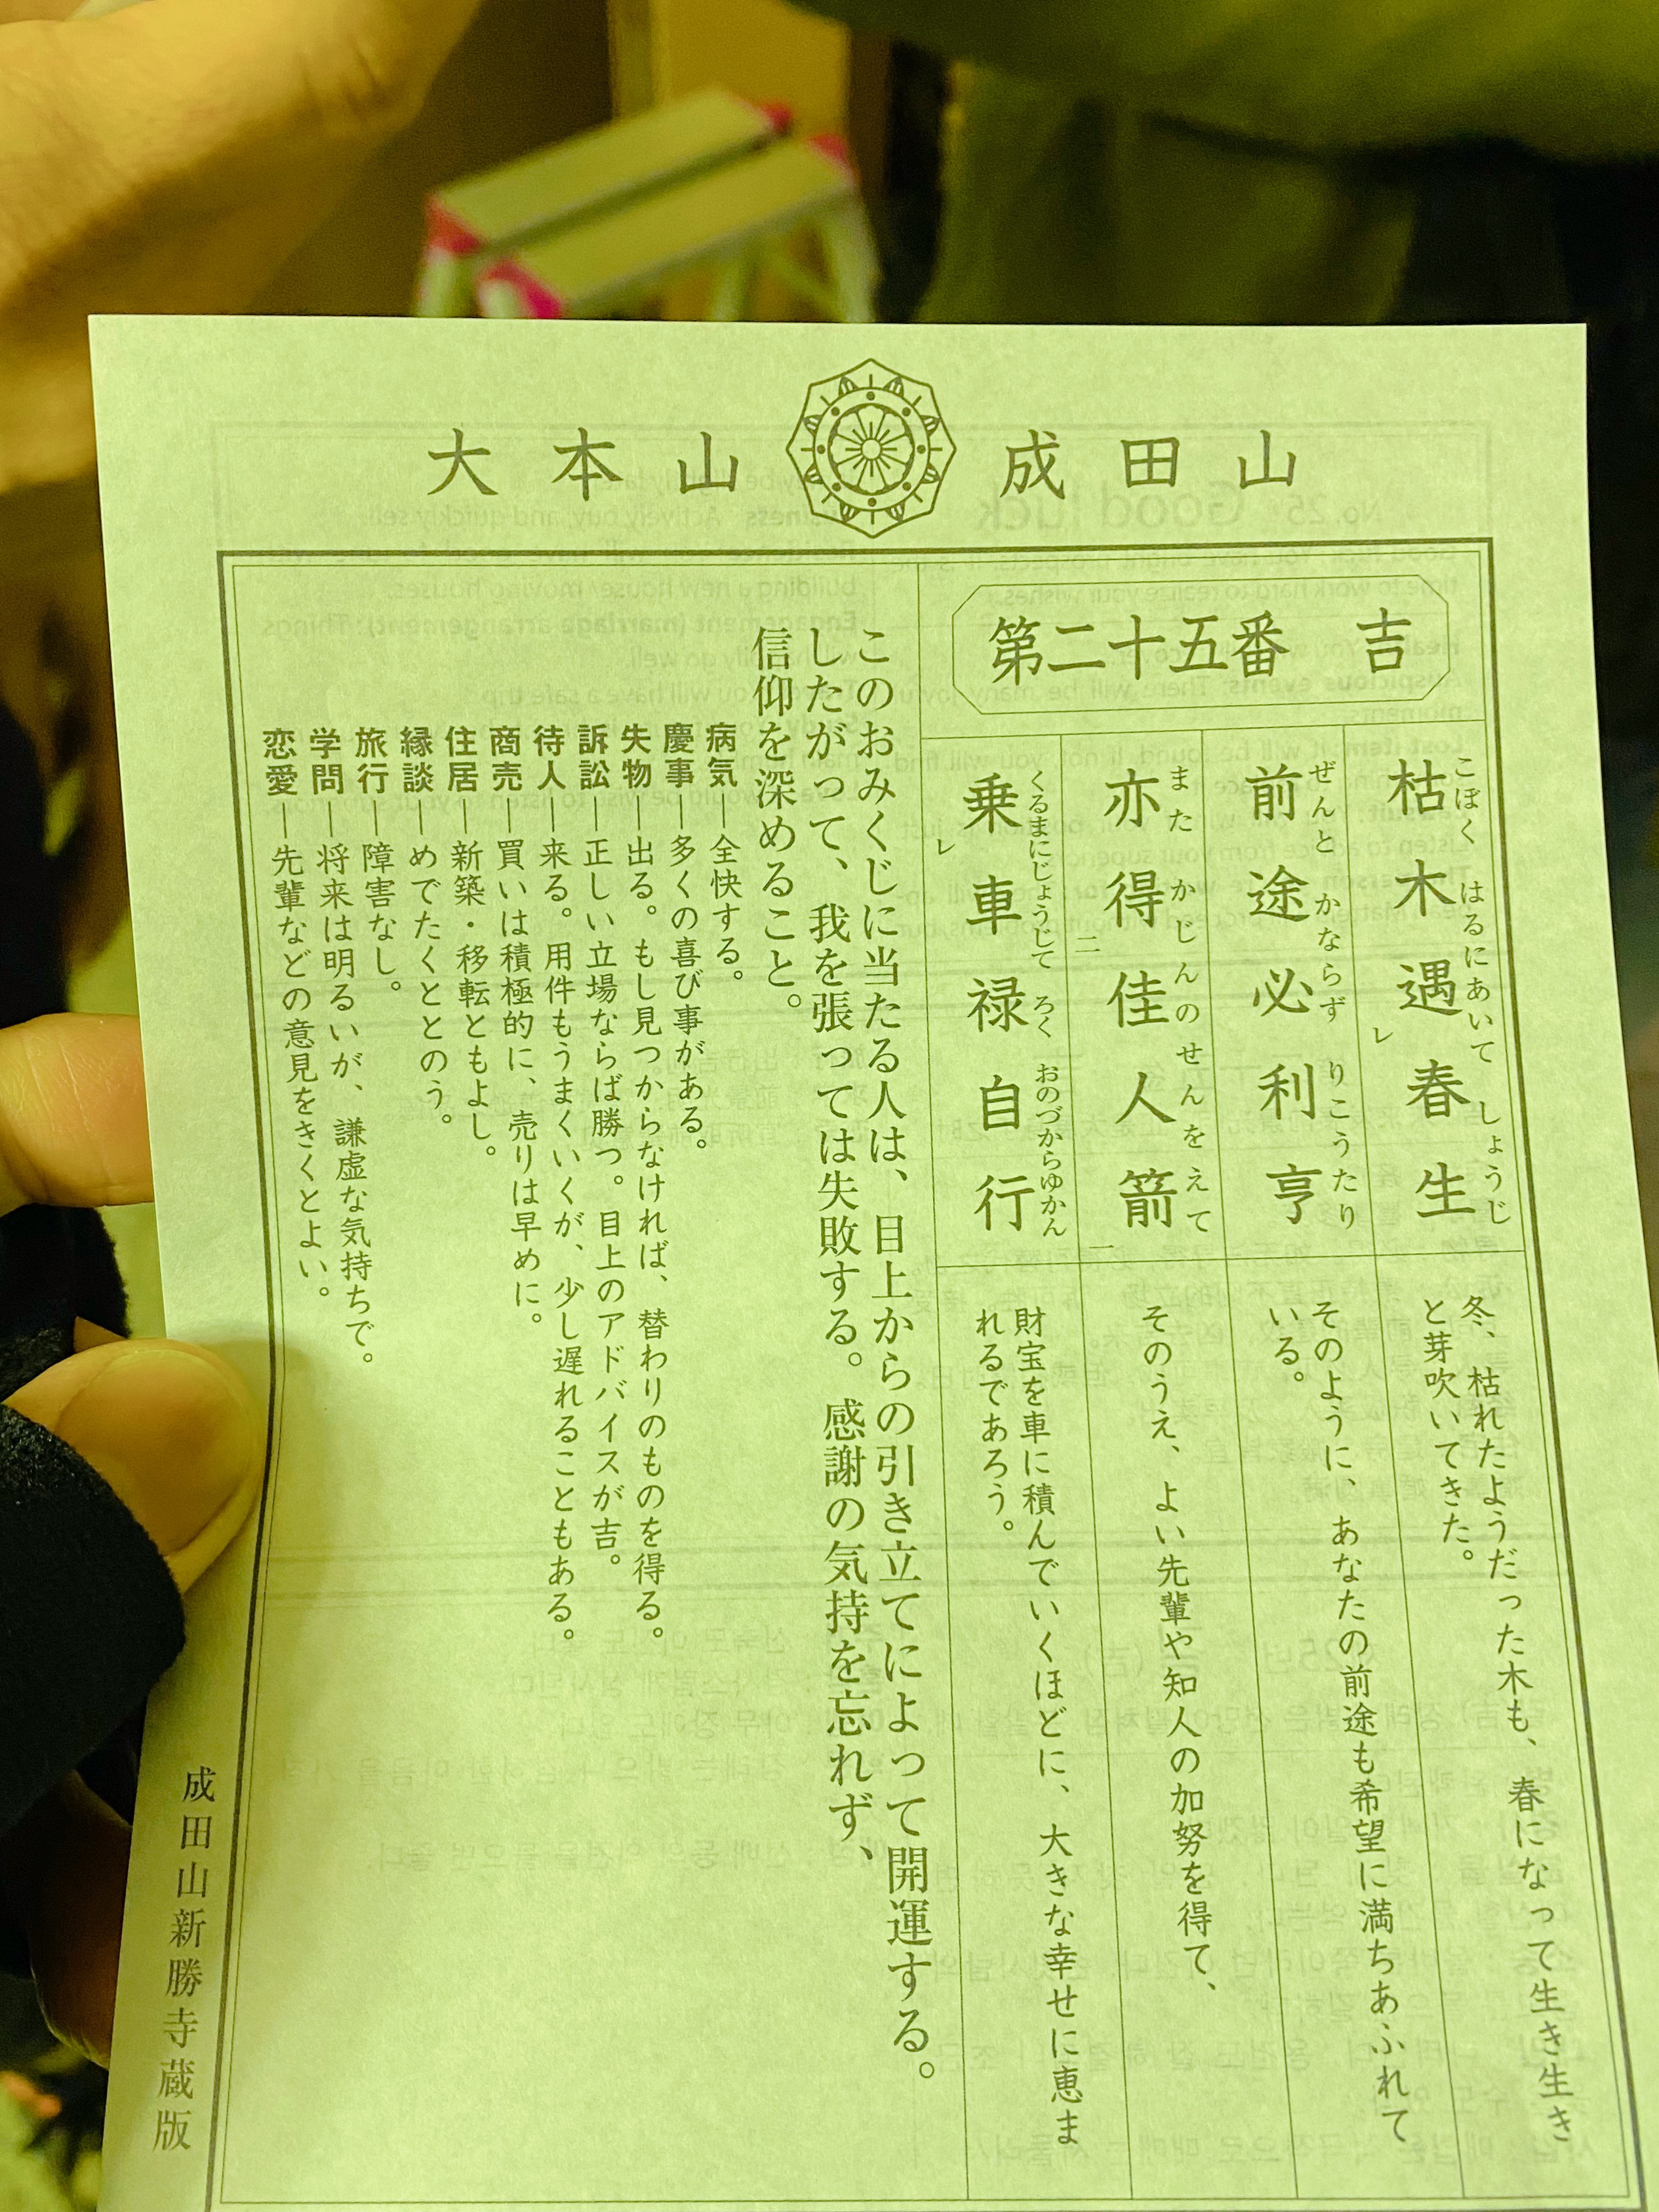 大本山 成田山
第二十五番 吉
枯木遇春生
こぼく はるにあいて しょうじ
レ
冬、枯れたようだった木も、春になって生き生き
と芽吹いてきた。
前途必利亨
ぜんと かならず りこうたり
そのように、あなたの前途も希望に満ちあふれて
いる。
亦得佳人箭
また かじんのせんをえて
二 一
そのうえ、よい先輩や知人の加努を得て、
乗車禄自行
くるまにじょうじて ろく おのづからゆかん
レ
財宝を車に積んでいくほどに、大きな幸せに恵ま
れるであろう。
このおみくじに当たる人は、目上からの引き立てによって開運する。
したがって、我を張っては失敗する。感謝の気持を忘れず、
信仰を深めること。
病気―全快する。
慶事―多くの喜び事がある。
失物―出る。もし見つからなければ、替わりのものを得る。
訴訟―正しい立場ならば勝つ。目上のアドバイスが吉。
待人―来る。用件もうまくいくが、少し遅れることもある。
商売―買いは積極的に、売りは早めに。
住居―新築・移転ともよし。
縁談―めでたくととのう。
旅行―障害なし。
学問―将来は明るいが、謙虚な気持ちで。
恋愛―先輩などの意見をきくとよい。
成田山新勝寺蔵版